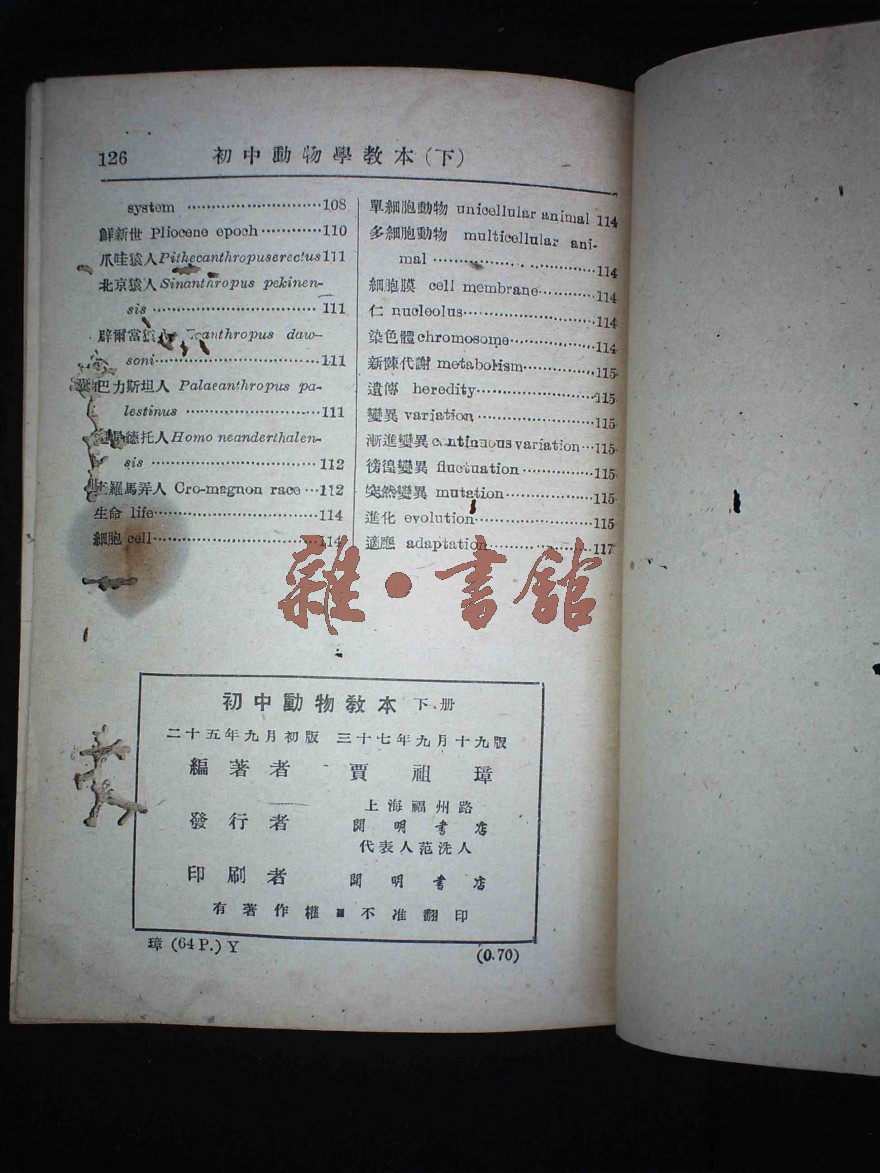 126 初中動物學教本(下)
system ……………………108
鮮新世 Pliocene epoch …………110
爪哇猿人Pithecanthropuserectus111
北京猿人Sinanthropus pekinen-
sis …………………………111
辟爾當 anthropus daw-
soni…………………………111
巴力斯坦人 Palaeanthropus pa-
lestinus ……………………111
德托人Homo neanderthalen-
sis …………………………112
羅馬弄人 Cro-magnon race …112
生命 life……………………114
細胞 cell……………………114
單細胞動物 unicellular animal 114
多細胞動物 multicellular ani-
mal …………………………114
細胞膜 cell membrane…………114
仁 nucleolus……………………114
染色體chromosome……………114
新陳代謝 metabolism……………115
遺傳 heredity……………………115
變異 variation……………………115
漸進變異 continuous variation…115
徬徨變異 fluctuation……………115
突然變異 mutation………………115
進化 evolution……………………115
適應 adaptation…………………117
雜·書館
初中動物教本 下冊
二十五年九月初版 三十七年九月十九版
編著者 賈祖璋
發行者 上海福州路
開明書店
代表人范洗人
印刷者 開明書店
有著作權■不准翻印
璋 (64 P.) Y (0.70)